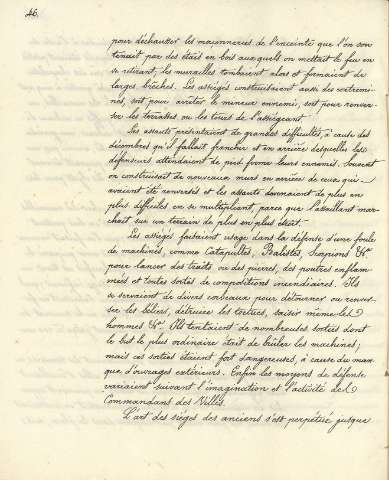 46.
pour déchausser les maçonneries de l'enceinte que l'on sou-
tenait par des étais en bois auxquels on mettait le feu en
se retirant, les murailles tombaient alors et formaient de
larges brèches. Les assiégés construisaient aussi des contremi-
nes, soit pour arrêter le mineur ennemi, soit pour renver-
ser les terrasses ou les tours de l'assiégeant.
Les assauts présentaient de grandes difficultés, à cause des
décombres qu'il fallait franchir et en arrière desquelles les
défenseurs attendaient de pied ferme leurs ennemis. Souvent
on construisait de nouveaux murs en arrière de ceux qui
avaient été renversés et les assauts devenaient de plus en
plus difficiles en se multipliant, parce que l'assaillant mar-
chait sur un terrain de plus en plus étroit.
Les assiégés faisaient usage dans la défense d'une foule
de machines, comme Catapultes, Balistes, Scorpions &ª
pour lancer des traits ou des pierres, des poutres enflam-
mées et toutes sortes de compositions incendiaires. Ils
se servaient de divers corbeaux pour détourner ou renver-
ser les béliers, détruire les tortues, saisir même les
hommes &ª. Ils tentaient de nombreuses sorties dont
le but le plus ordinaire était de brûler les machines;
mais ces sorties étaient fort dangereuses, à cause du man-
que d'ouvrages extérieurs. Enfin les moyens de défense
variaient suivant l'imagination et l'activité des
Commandants des Villes.
L'art des sièges des anciens s'est perpétué jusque